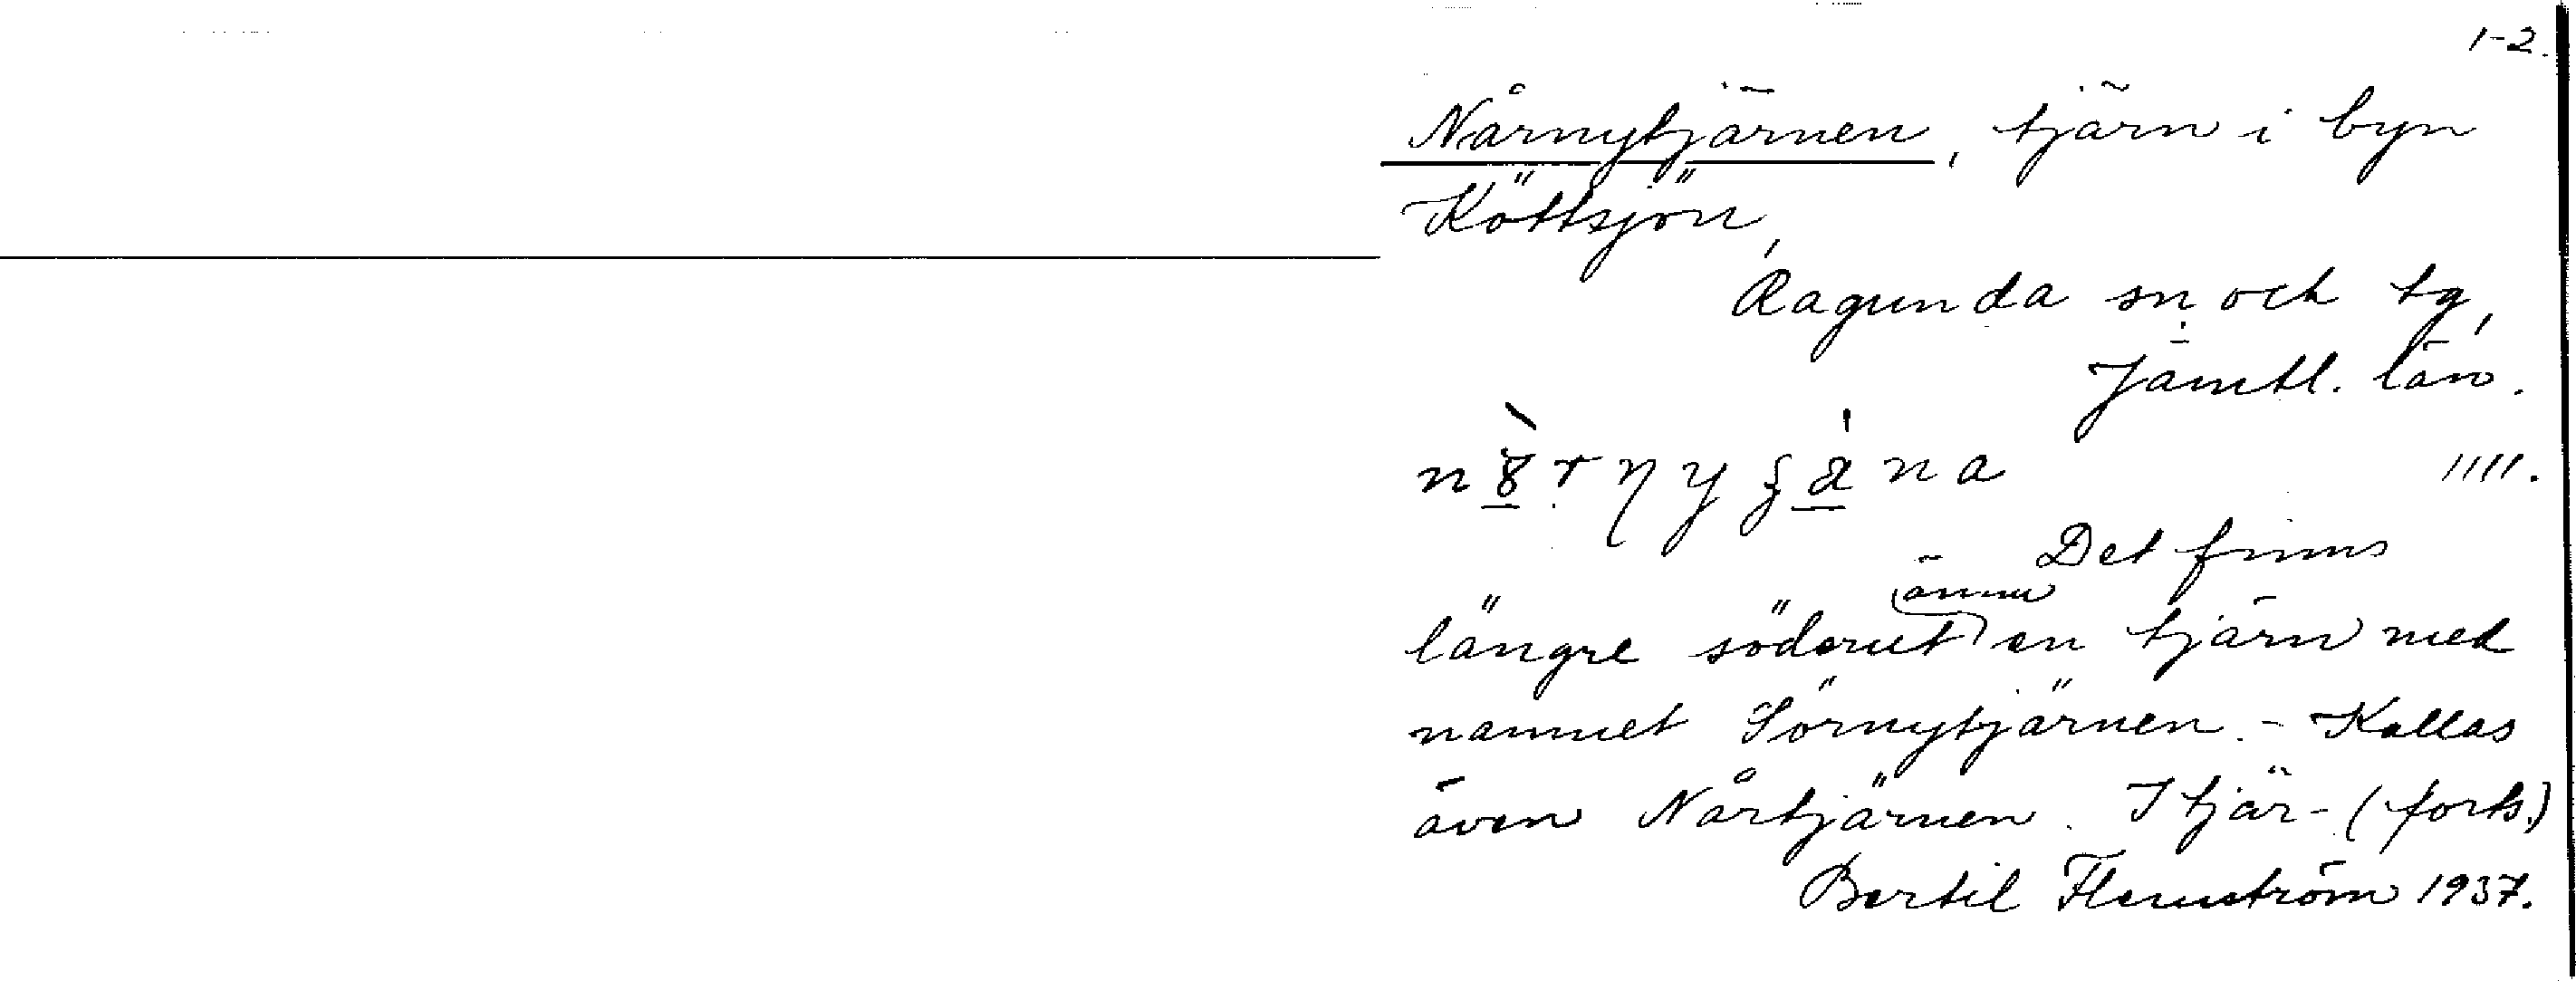 1-2.
Nårnytjärnen, tjärn i byn
Köttsjön,
Ragunda sn och tg,
Jämtl. län.
1111.
Det finns
längre söderut ännu en tjärn med
namnet Sörnytjärnen. - Kallas
även Nårtjärnen. I tjär- (forts.)
Bertil Flemström 1937.